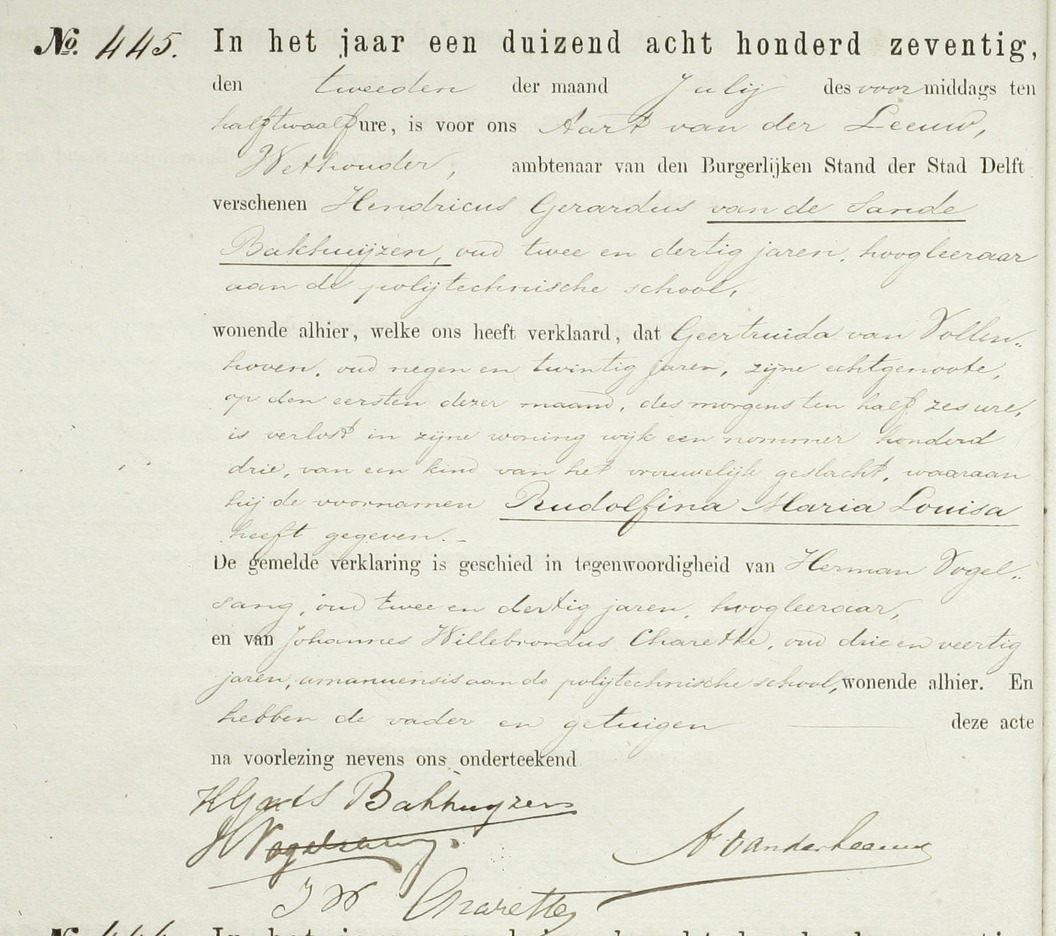 No. 445. In het jaar een duizend acht honderd zeventig,
den tweeden der maand Julij des voormiddags ten
halftwaalf ure, is voor ons Aart van der Leeuw,
Wethouder, ambtenaar van den Burgerlijken Stand der Stad Delft
verschenen Hendricus Gerardus van de Sande
Bakhuijzen, oud twee en dertig jaren, hoogleeraar
aan de polijtechnische school,
wonende alhier, welke ons heeft verklaard, dat Geertruida van Vollen„
hoven, oud negen en twintig jaren, zijne echtgenoote,
op den eersten dezer maand, des morgens ten half zes ure,
is verlost in zijne woning wijk een nommer honderd
drie, van een kind van het vrouwelijk geslacht, waaraan
hij de voornamen Rudolfina Maria Louisa
heeft gegeven.–
De gemelde verklaring is geschied in tegenwoordigheid van Herman Vogel„
sang, oud twee en dertig jaren, hoogleeraar,
en van Johannes Willebrordus Charette, oud drie en veertig
jaren, amanuensis aan de polijtechnische school, wonende alhier. En
hebben de vader en getuigen deze acte
na voorlezing nevens ons onderteekend
HGvdS Bakhuyzen
HVogelsang.
A vanderLeeuw
J W Charette